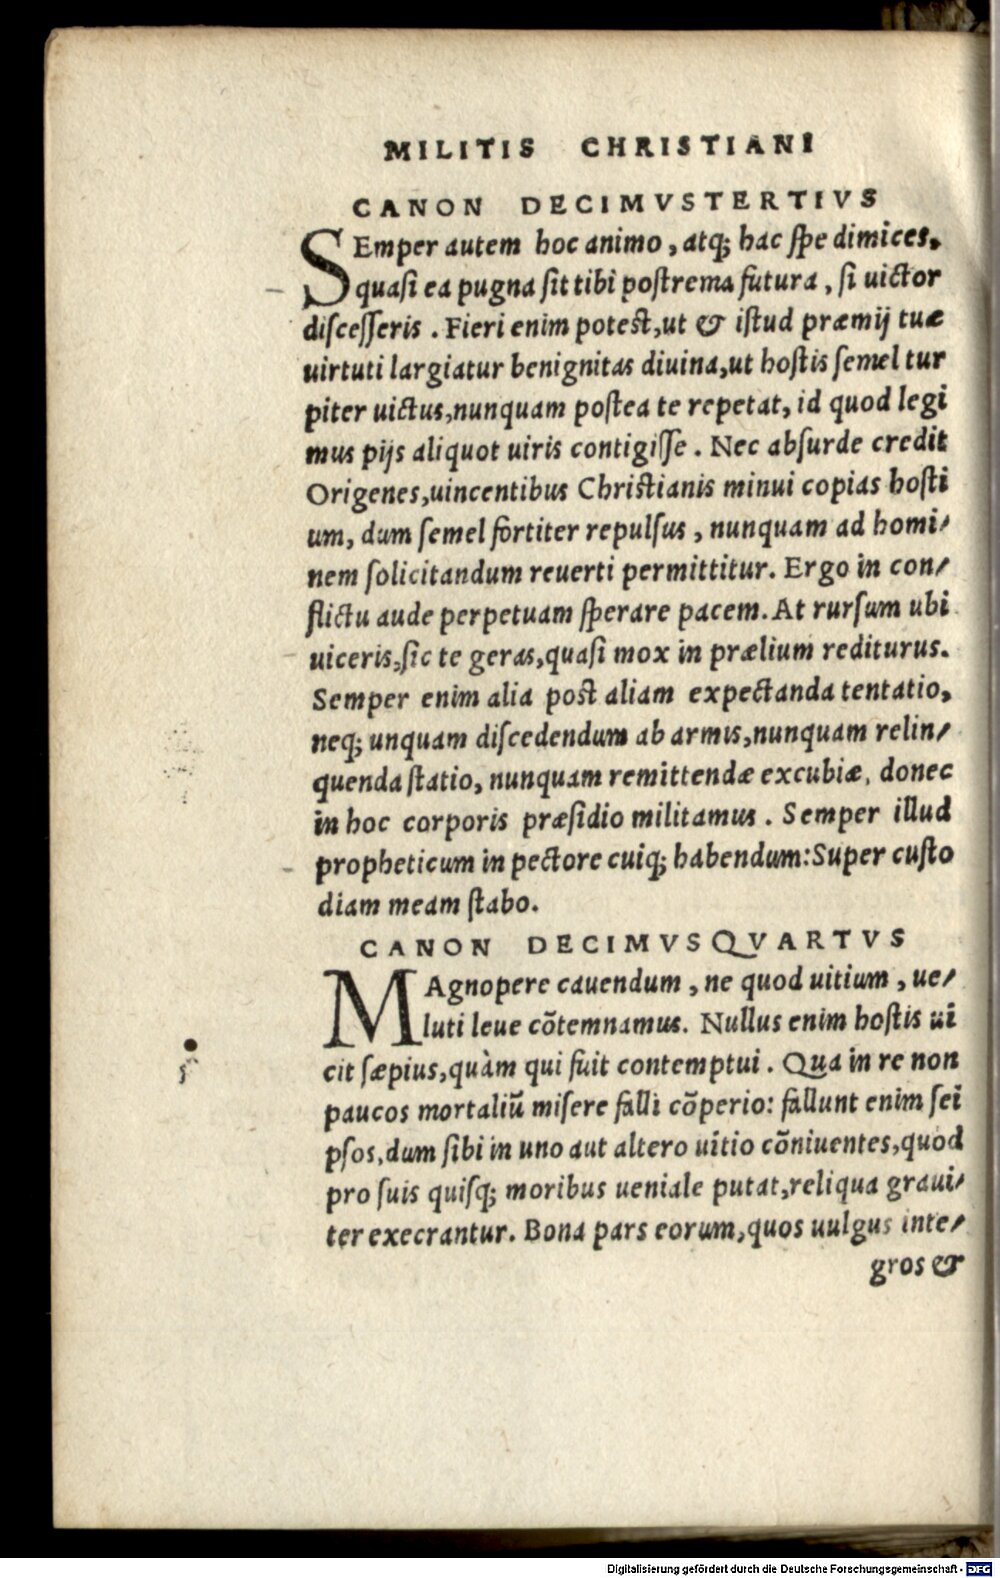 MILITIS CHRISTIANI
CANON DECIMVSTERTIVS
SEmper autem hoc animo, atq; hac ſpe dimices,
quaſi ea pugna ſit tibi poſtrema futura, ſi uictor
diſceſſeris. Fieri enim poteſt, ut & iſtud præmij tuæ
uirtuti largiatur benignitas diuina, ut hoſtis ſemel tur
piter uictus, nunquam poſtea te repetat, id quod legi
mus pijs aliquot uiris contigiſſe. Nec abſurde credit
Origenes, uincentibus Chriſtianis minui copias hoſti
um, dum ſemel fortiter repulſus, nunquam ad homi/
nem ſolicitandum reuerti permittitur. Ergo in con/
flictu aude perpetuam ſperare pacem. At rurſum ubi
uiceris, ſic te geras, quaſi mox in prælium rediturus.
Semper enim alia poſt aliam expectanda tentatio,
neq; unquam diſcedendum ab armis, nunquam relin/
quenda ſtatio, nunquam remittendæ excubiæ, donec
in hoc corporis præſidio militamus. Semper illud
propheticum in pectore cuiq; habendum: Super cuſto
diam meam ſtabo.
CANON DECIMVSQVARTVS
MAgnopere cauendum, ne quod uitium, ue/
luti leue cõtemnamus. Nullus enim hoſtis ui
cit ſæpius, quàm qui fuit contemptui. Qua in re non
paucos mortaliũ miſere falli cõperio: fallunt enim ſei
pſos, dum ſibi in uno aut altero uitio cõniuentes, quod
pro ſuis quiſq; moribus ueniale putat, reliqua graui/
ter execrantur. Bona pars eorum, quos uulgus inte/
gros &
Digitalisierung gefördert durch die Deutsche Forschungsgemeinschaft - DFG